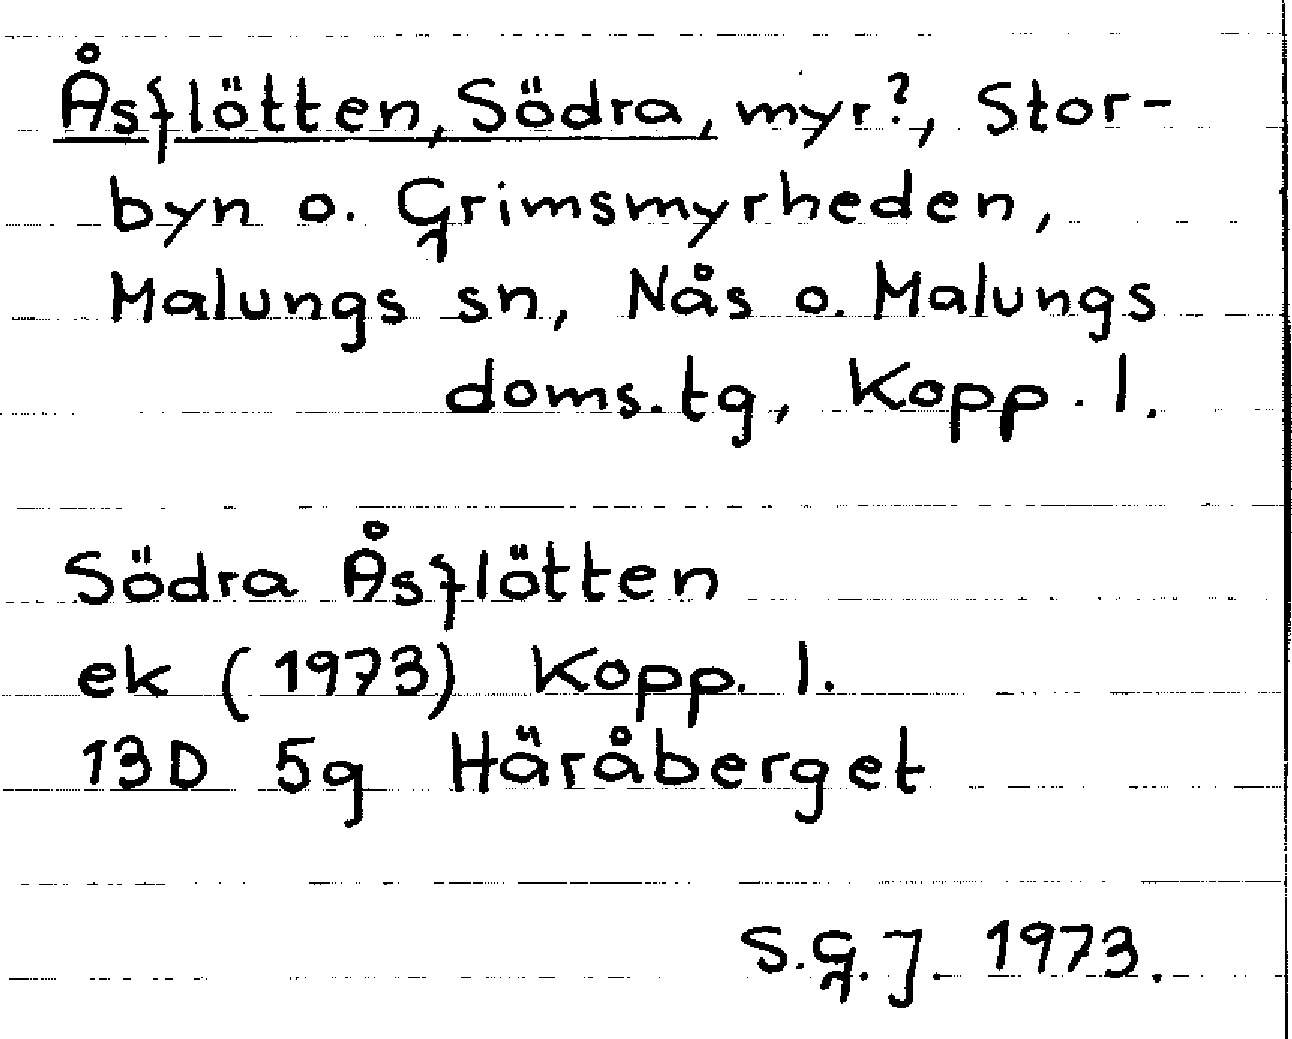 Åsflötten, Södra, myr?, Stor-
byn o. Grimsmyrheden,
Malungs sn, Nås o. Malungs
doms.tg, Kopp. l.
Södra Åsflötten
ek (1973) Kopp. l.
13D 5g Häråberget
S.G.J. 1973.